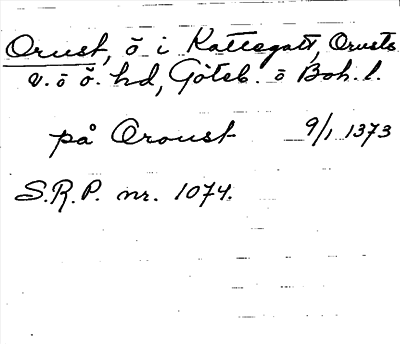 Orust, ö i Kattegatt, Orusts
v. o ö. hd, Göteb. o Boh. l.
på Oroust 9/1 1373
S.R.P. nr. 1074.